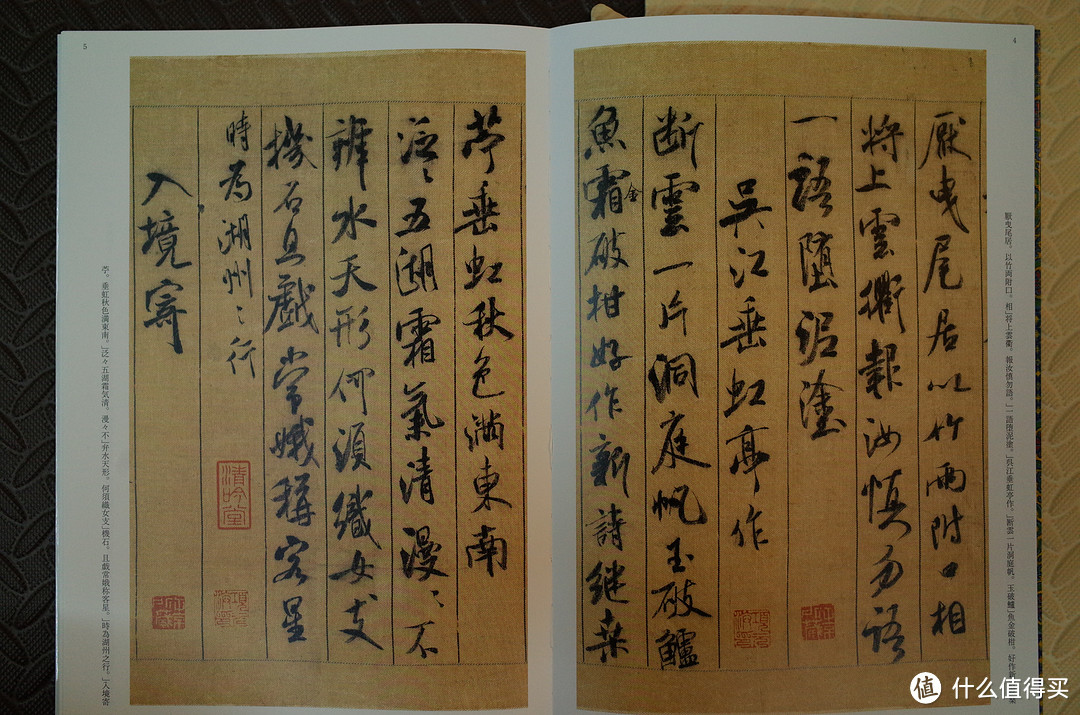 4
厭曳尾居以竹兩附口相
將上雲衢報汝慎勿語
一語墮泥塗
吳江垂虹亭作
断雲一片洞庭帆玉破鱸
魚霜金破柑好作新詩継桒
厭曳尾居。以竹両附口。相」将上雲衢。報汝慎勿語。」一語堕泥塗。」呉江垂虹亭作。」断雲一片洞庭帆。玉破鱸」魚金破柑。好作
5
苧垂虹秋色滿東南
泛〻五湖霜氣清漫〻不
辨水天形何須織女支
機石且戲常娥稱客星
時為湖州〻行
入境寄
清吟堂
苧。垂虹秋色満東南。」泛々五湖霜気清。漫々不」弁水天形。何須織女支」機石。且戯常娥称客星。」時為湖州之行。」入境寄
值 什么值得买